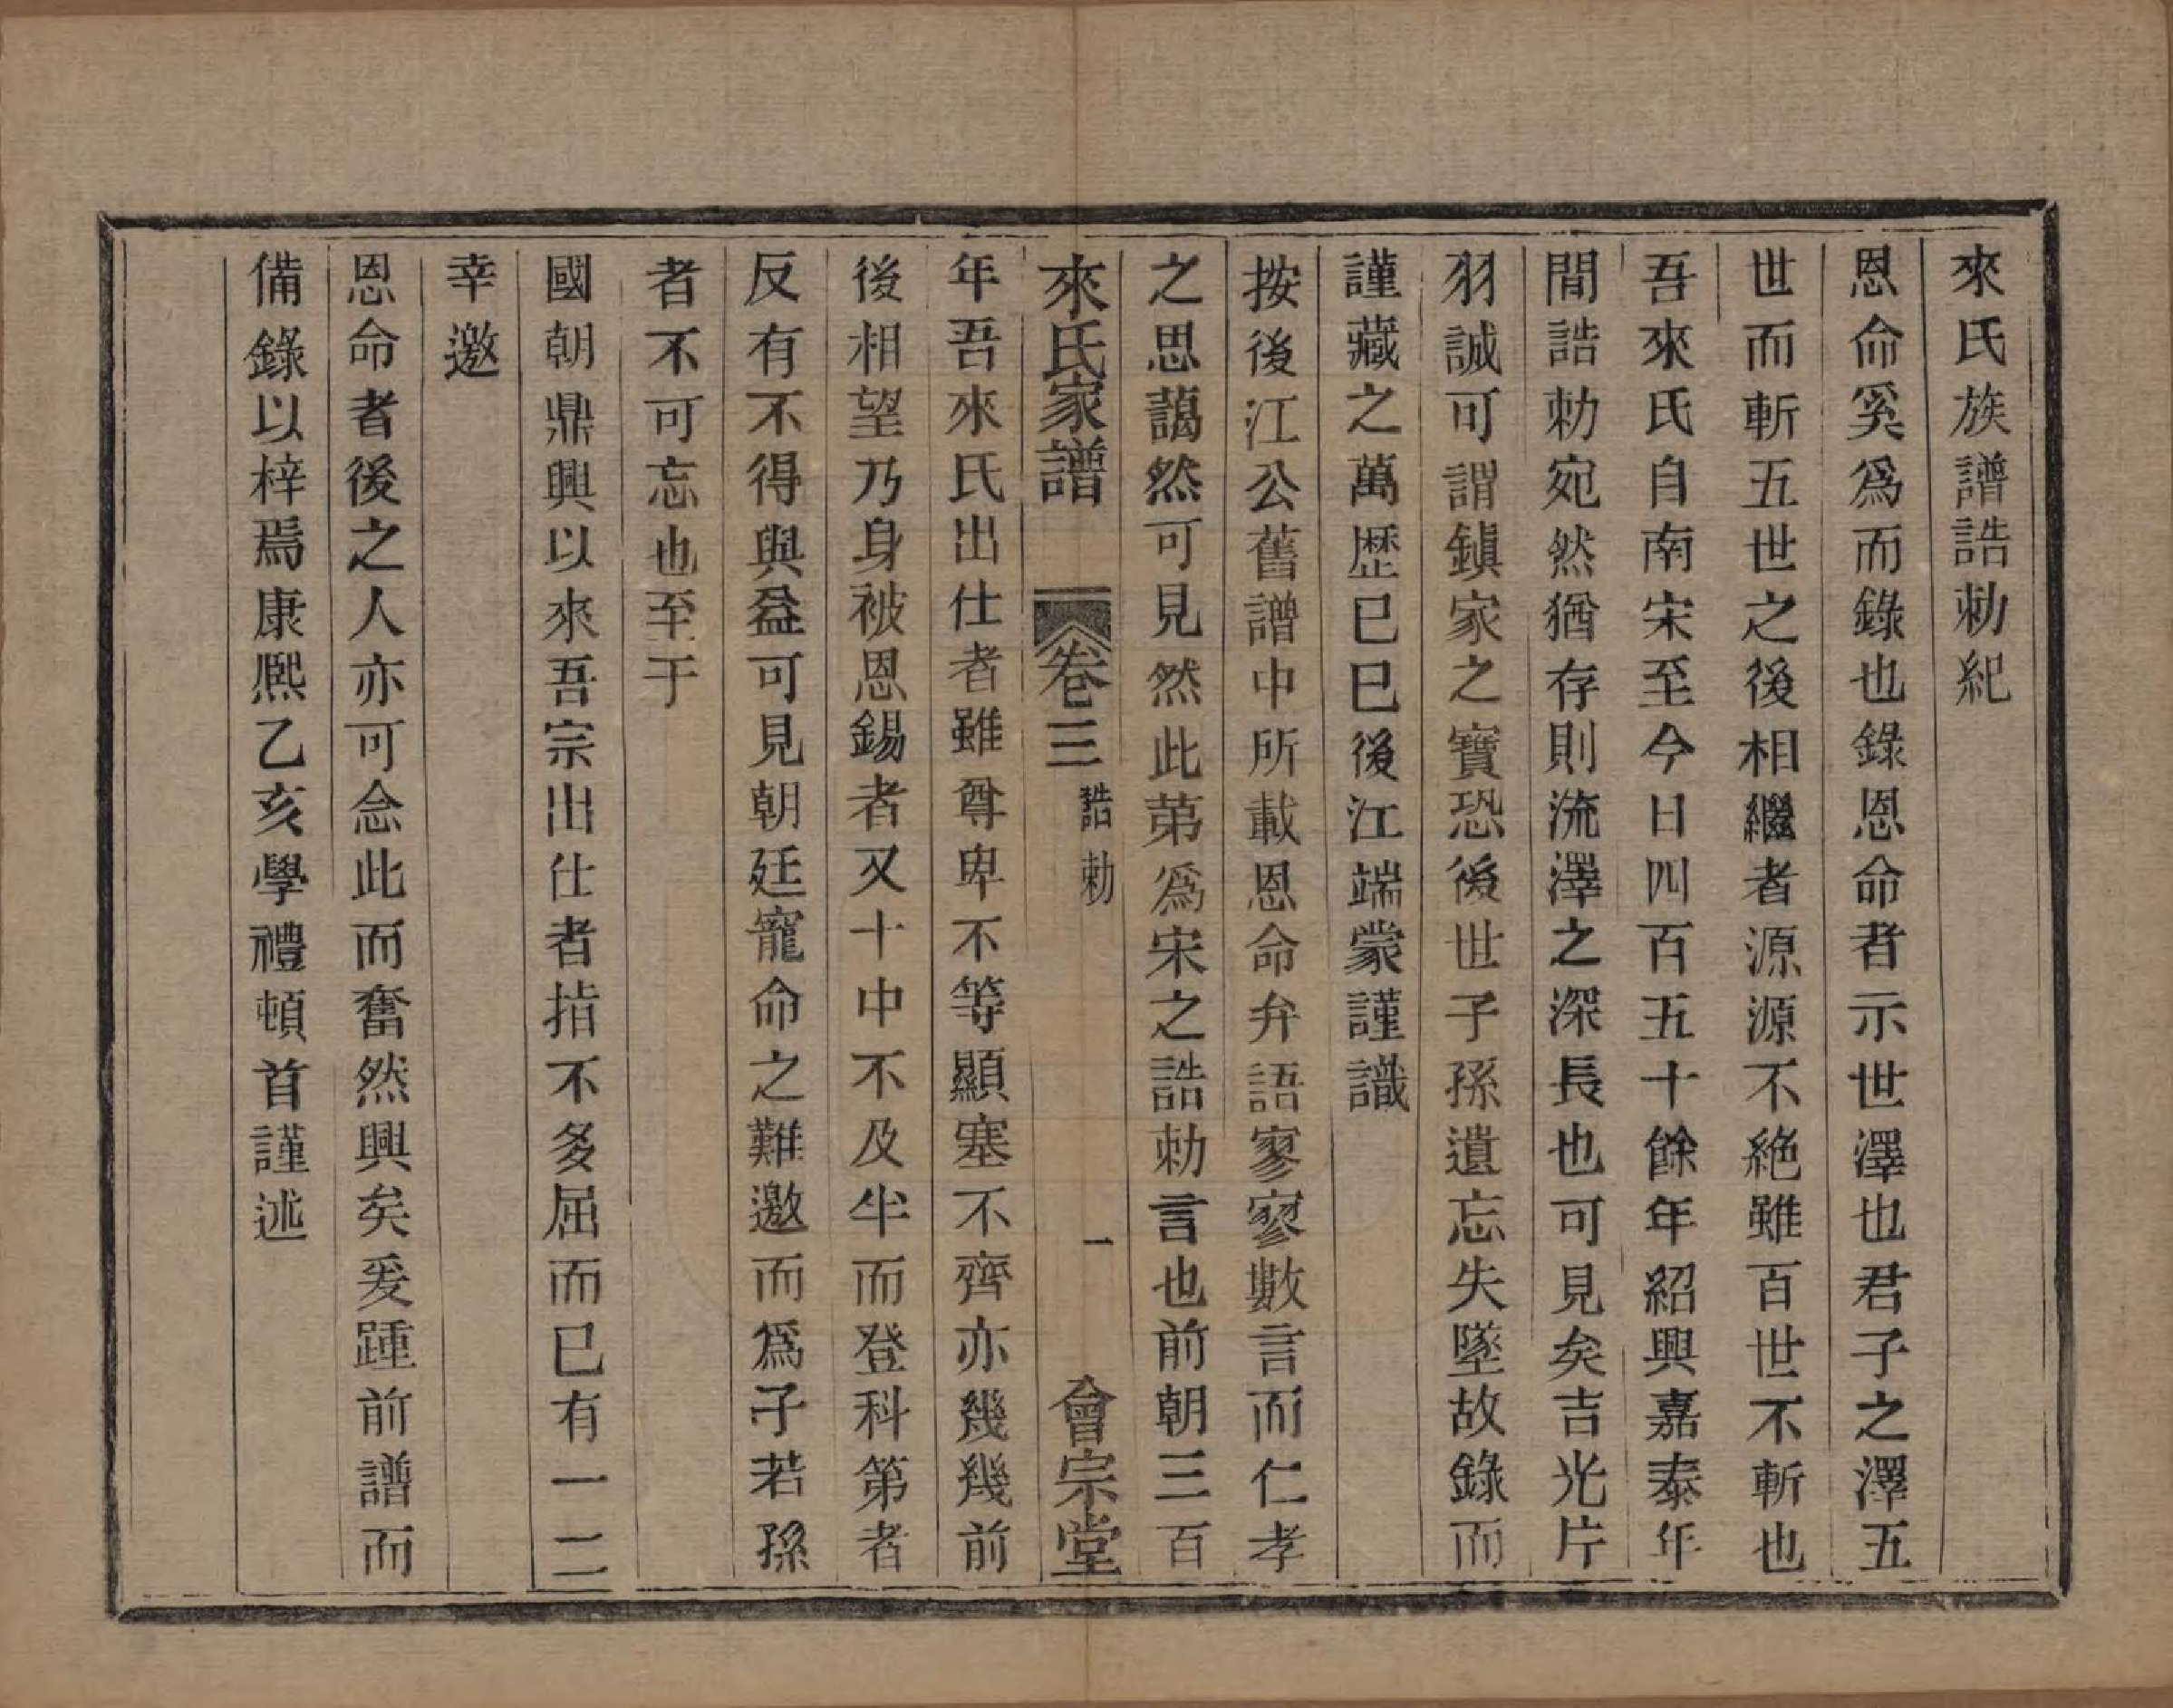 來氏族譜誥勅紀
恩命奚爲而錄也錄恩命者示世澤也君子之澤五
世而斬五世之後相繼者源源不絶雖百世不斬也
吾來氏自南宋至今日四百五十餘年紹興嘉泰年
間誥勅宛然猶存則流澤之深長也可見矣吉光片
羽誠可謂鎭家之寶恐後世子孫遺忘失墜故錄而
謹藏之萬歷已巳後江端蒙謹識
按後江公舊譜中所載恩命弁語寥寥數言而仁孝
之思藹然可見然此第爲宋之誥勅言也前朝三百
來氏家譜 卷三 誥勅 一 會宗堂
年吾來氏出仕者雖尊卑不等顯塞不齊亦幾幾前
後相望乃身被恩錫者又十中不及半而登科第者
反有不得與益可見朝廷寵命之難邀而爲子若孫
者不可忘也至于
國朝鼎興以來吾宗出仕者指不多屈而已有一二
幸邀
恩命者後之人亦可念此而奮然興矣爰踵前譜而
備錄以梓焉康熙乙亥學禮頓首謹述